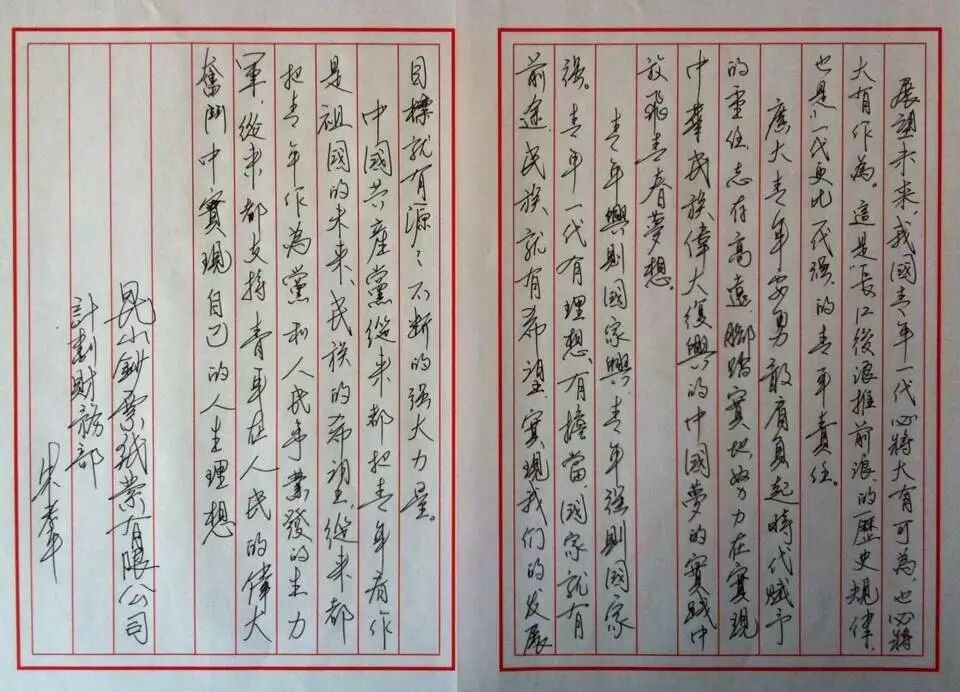 展望未来,我國青年一代必將大有可為,也必將
大有作為。這是“長江後浪推前浪”的歷史規律,
也是“一代更比一代强”的青年責任。
廣大青年要勇敢肩負起時代赋予
的重任,志存高遠,腳踏實地,努力在實現
中華民族偉大復興的中國夢的實踐中
放飛青春夢想。
青年興則國家興,青年强則國家
强。青年一代有理想、有擔當,國家就有
前途,民族就有希望,實現我们的发展
目標就有源々不断的强大力量。
中國共產黨從来都把青年看作
是祖國的未来、民族的希望,從来都
把青年作為黨和人民事業發的生力
軍,從来都支持青年在人民的偉大
奮鬥中實現自己的人生理想
昆山鈔票纸業有限公司
計劃財務部
朱